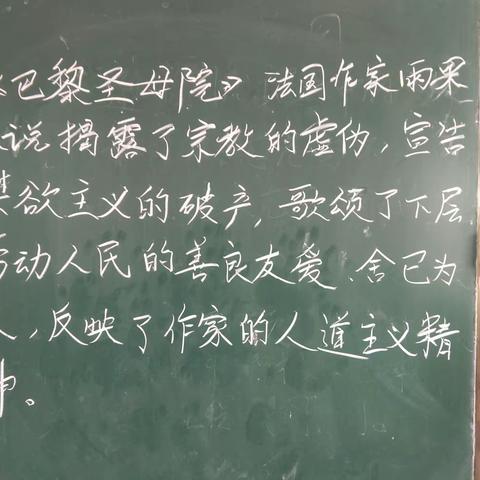 《巴黎圣母院》 法国作家雨果
说揭露了宗教的虚伪，宣告
禁欲主义的破产，歌颂了下层
劳动人民的善良友爱、舍己为
人，反映了作家的人道主义精
神。